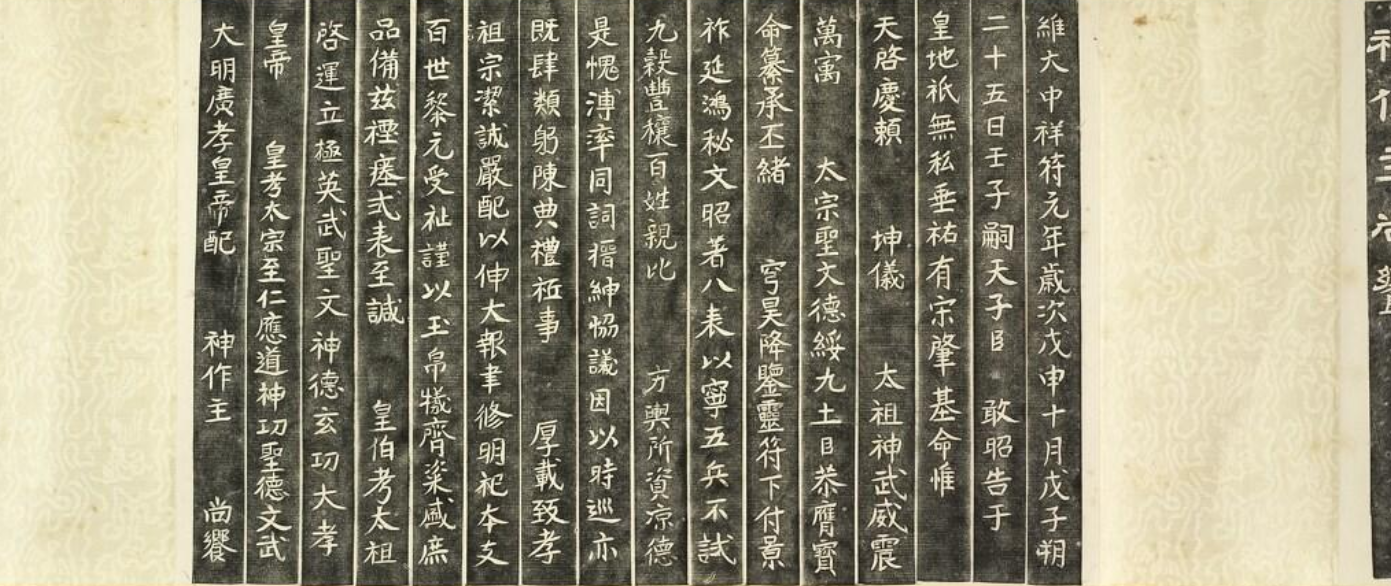 維大中祥符元年歲次戊申十月戊子朔
二十五日壬子嗣天子臣 敢昭告于
皇地祇無私垂祐有宋肇基命惟
天啓慶頼 坤儀 太祖神武威震
萬寓 太宗聖文德綏九土臣恭膺寶
命纂承丕緒 穹昊降鑒靈符下付景
祚延鴻秘文昭著八表以寧五兵不試
九穀豐穰百姓親比 方輿所資涼德
是愧溥率同詞搢紳恊議因以時巡亦
既肆類躬陳典禮祗事 厚載致孝
祖宗潔誠嚴配以伸大報聿修明祀本支
百世黎元受祉謹以玉帛犧齊粢盛庶
品備茲禋瘞式表至誠 皇伯考太祖
啓運立極英武聖文神德玄功大孝
皇帝 皇考太宗至仁應道神功聖德文武
大明廣孝皇帝配 神作主 尚饗